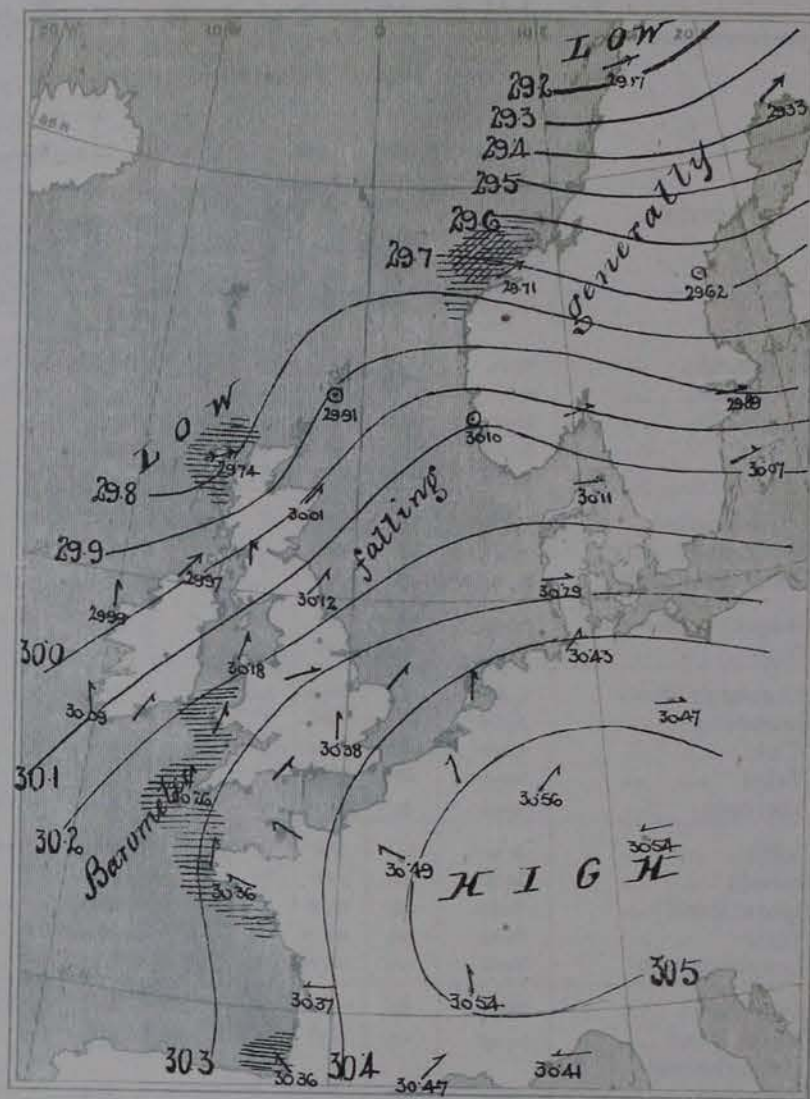 10 W
0
10 E
20
LOW
29.2
29.57
29.3
29.33
29.4
29.5
generally
29.6
29.7
29.71
29.62
LOW
29.91
29.89
30.10
29.74
29.8
30.07
30.01
falling
30.11
29.9
29.97
29.99
30.12
30.29
30.0
30.18
30.43
30.09
30.47
30.38
30.1
30.56
30.26
30.2
Barometer
30.54
30.49
HIGH
30.36
30.5
30.37
30.54
30.3
30.36
30.4
30.47
30.41